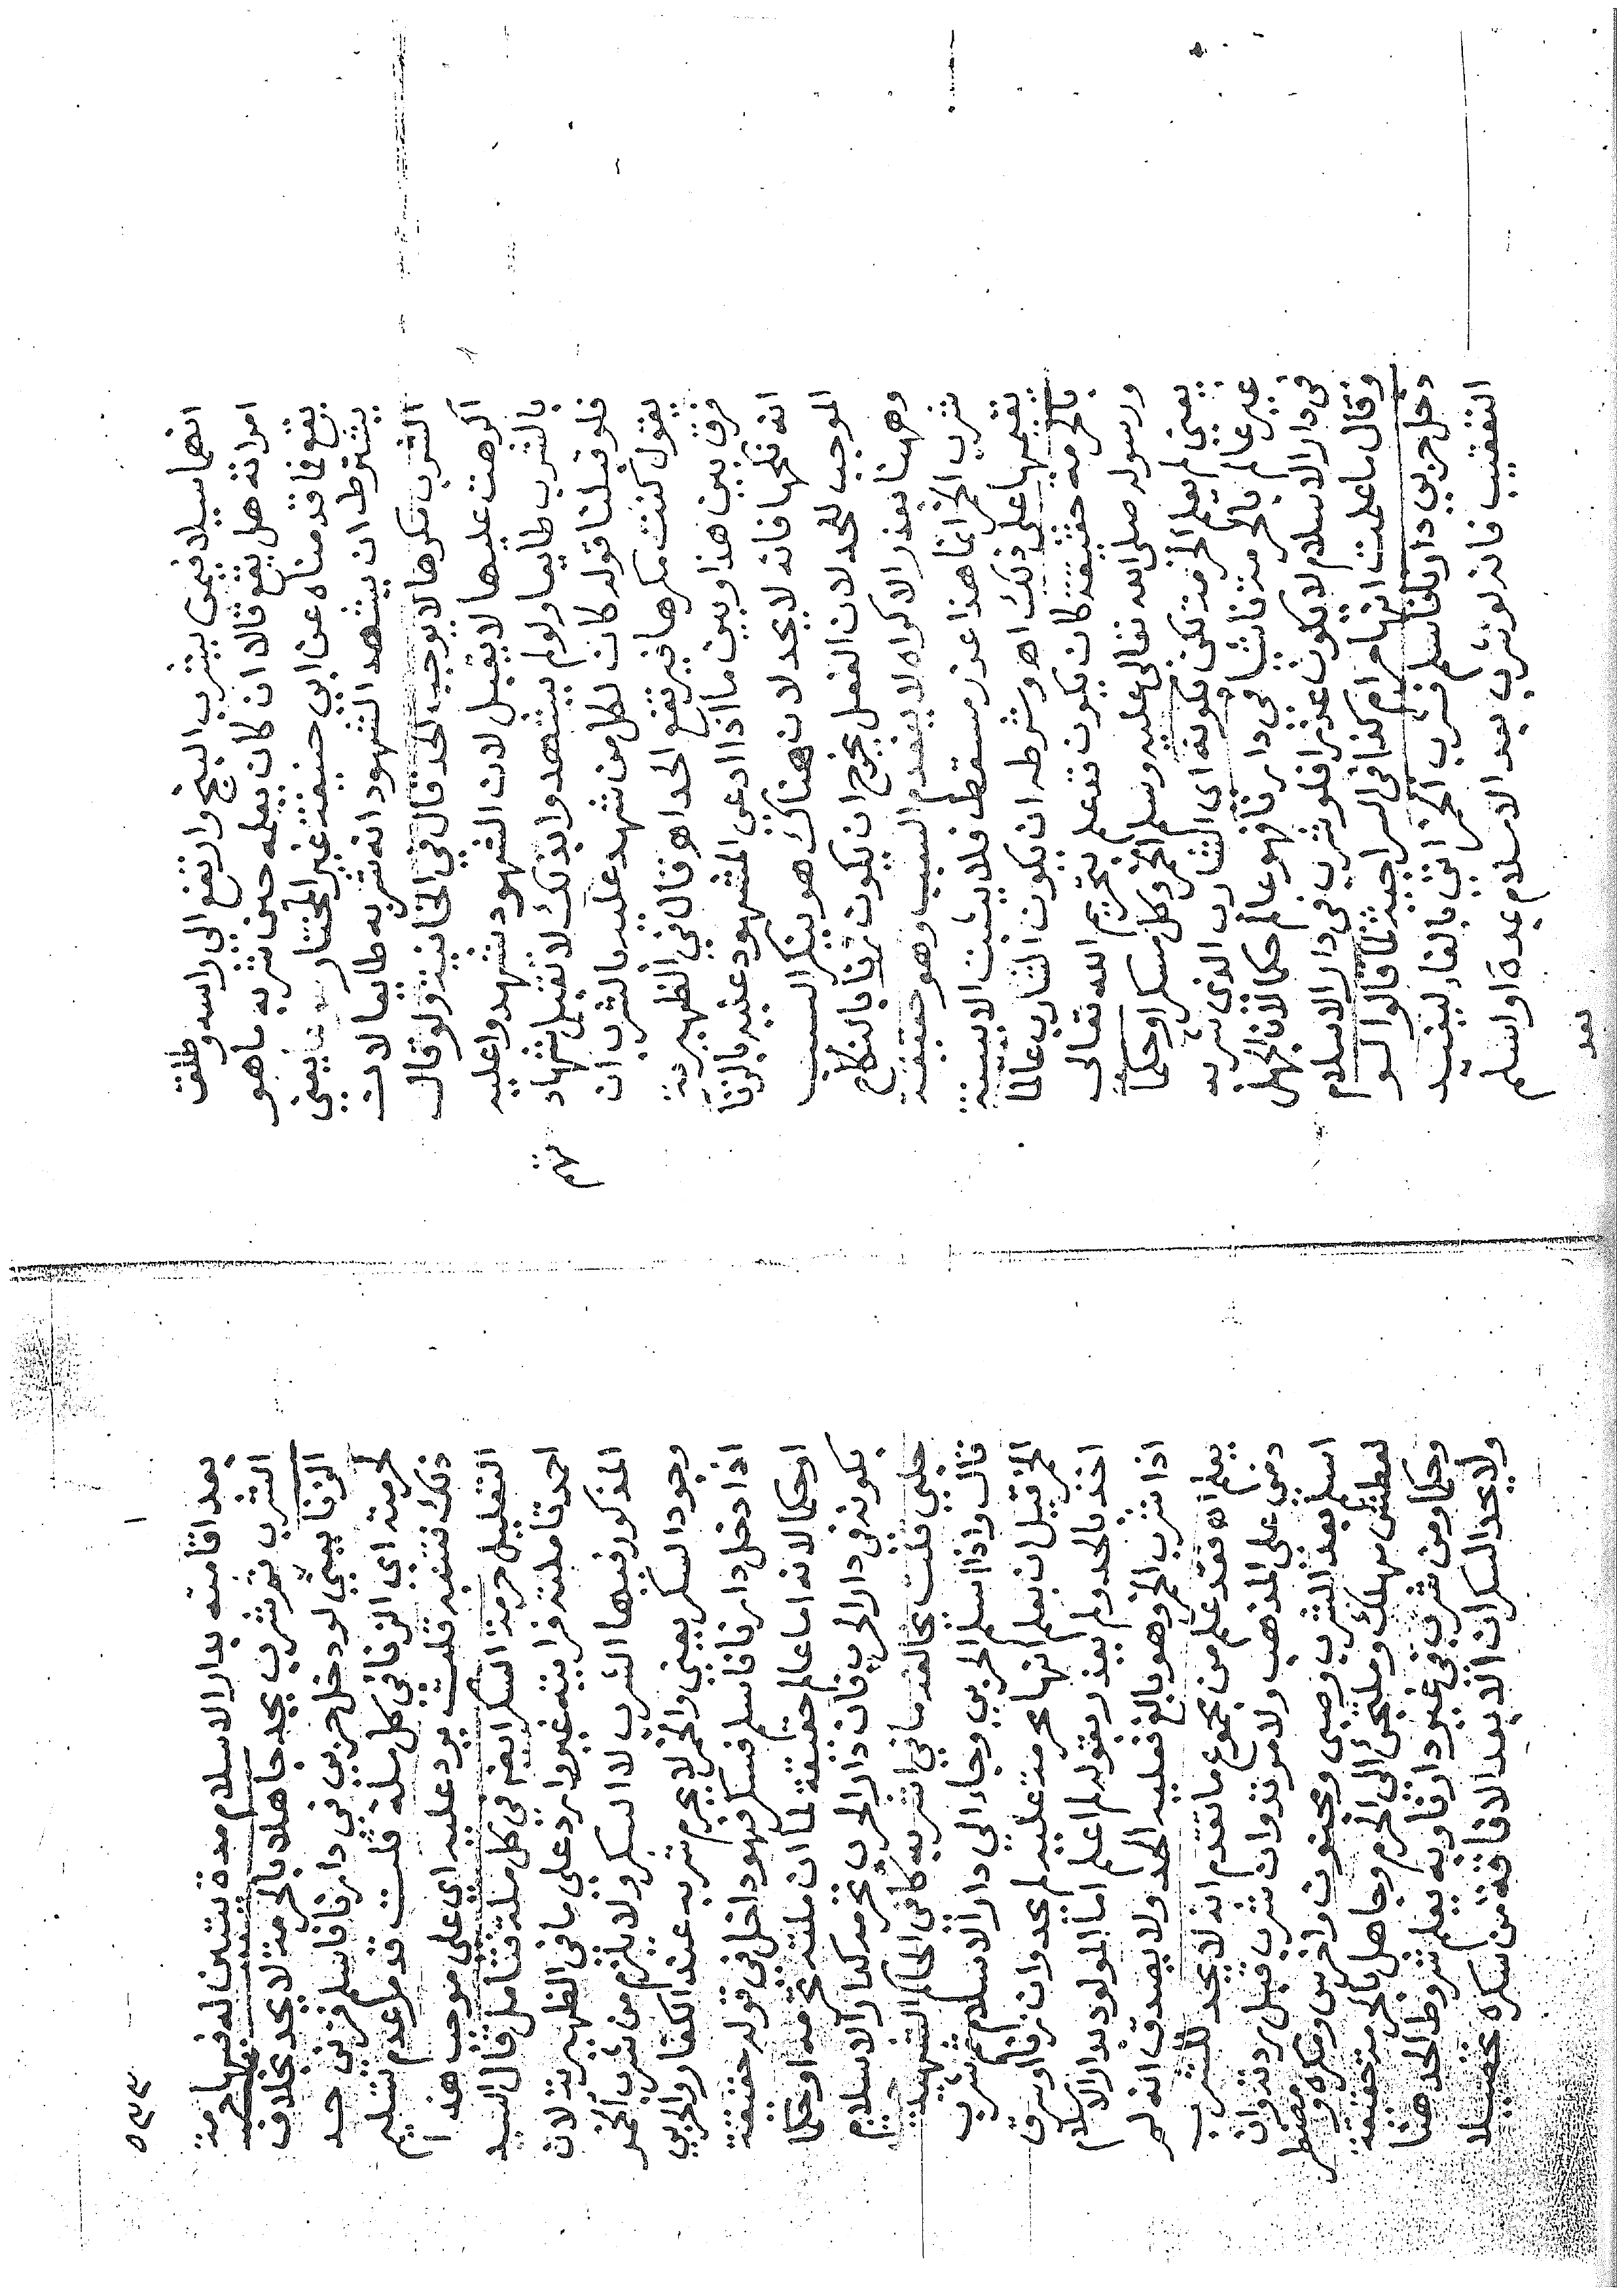 انهما سيلا فيمن يشرب البنج وارتفع الى راسه وطلق
امراته هل يقع قالا ان كان يعلمه حين شربه ما هو
يقع فما قدمناه عن ابي حنيفة غير المختار يعني
يشترط ان يشهد الشهود انه شربه طايعا لان
الشرب مكرها لا يوجب الحد قال في الخانية ولو قال
اكرهت عليها لا يقبل لان الشهود شهدوا عليه
بالشرب طايعا ولو لم يشهدوا بذلك لا تقبل شهاد تهم
فلو قبلنا قوله كان لكل من شهد عليه بالشرب ان
يقول كنت مكرها فيرتفع الحد اهـ قال في الظهيرية
فرق بين هذا وبين ما اذا ادعى المشهود عليه بالزنا
انه نكحها فانه لا يحد لان هناك هو ينكر السبب
الموجب للحد لان الفعل يخرج ان يكون زنا بالنكاح
وههنا بعذر الاكراه لا ينعدم السبب وهو حقيقة
شرب الخمر انما هذا عذر مسقط فلا يثبت الا ببينة
تقيمها على ذلك اهـ وشرطه ان يكون الشارب عالما
بالحرمه حقيقة كان يكون قد علم بتحريم الله تعالى
ورسوله صلى الله تعالى عليه وسلم الخمر وكل مسكر او حكما
يعني لم يعلم الحرمة لكن بكونه اى الشارب الذي شربه
غير عالم بالحرمة ناشيا في دارنا فهو عالم حكما لان الجهل
في دار الاسلام لا يكون عذرا فلو شرب في دار الاسلام
وقال ما علمت انها حرام كذا في السراجية ثم قالوا لو
دخل حربي دارنا فاسلم فشرب الخمر اتي بالفاء ليفيد
التعقيب فانه لو شرب بعد الاسلام بمدة او اسلم
بعد
٥٣٣
بعد اقامته بدار الاسلام مدة تتبين له فيها حرمة
الشرب ثم شرب يحد جاهلا بالحرمة لا يحد بخلاف
الزنا يعني لو دخل حربي في دارنا فاسلم فزنى حد
لحرمته اي الزنا في كل ملة قلت قد مر عدم تسليم
ذلك فتنبه قلت يرد عليه اى على موجب هذا
التعليل حرمة السكر ايضا في كل ملة فتامل قال السيد
احمد تاملته فرايته غير وارد على ما في الظهيرية لان
المذكور فيها الشرب لا السكر ولا يلزم من شرب الخمر
وجود السكر يعني والخمر لا يحرم شربه عند الكفار والحربي
اذا دخل دارنا فاسلم فسكر فهو داخل في قوله حقيقة
او حكما لانه اما عالم حقيقة لما ان ملته تحرمه او حكما
بكونه في دار الحرب فان دار الحرب تحرمه كدار الاسلام
حلبي قلت يخالفه ما في اشربه كافي الحاكم الشهيد
قال واذا اسلم الحربي وجاء الي دار الاسلام ثم شرب
الخمر قبل ان يعلم انها محرمة عليه لم يحد وان زنا او سرق
اخذ بالحد ولم يعذر بقوله لم اعلم اما المولود بدار الاسلام
اذا شرب الخمر وهو بالغ فعليه الحد ولا يصدق انه لم
يعلم اهـ فقد علم من مجموع ما تقدم انه لا يحد للشرب
ذمي على المذهب ولا مرتد وان شرب قبل ردته وان
اسلم بعد الشرب وصبي ومجنون واخرس ومكره ومضطر
لعطش مهلك وملتجئ الى الحرم وجاهل بالحرمة حقيقة
وحكما ومن شرب في غير دارنا وبه يعلم شروط الحد هنا
ولا يحد السكران الا بعد الافاقة من سكره تحصيلا